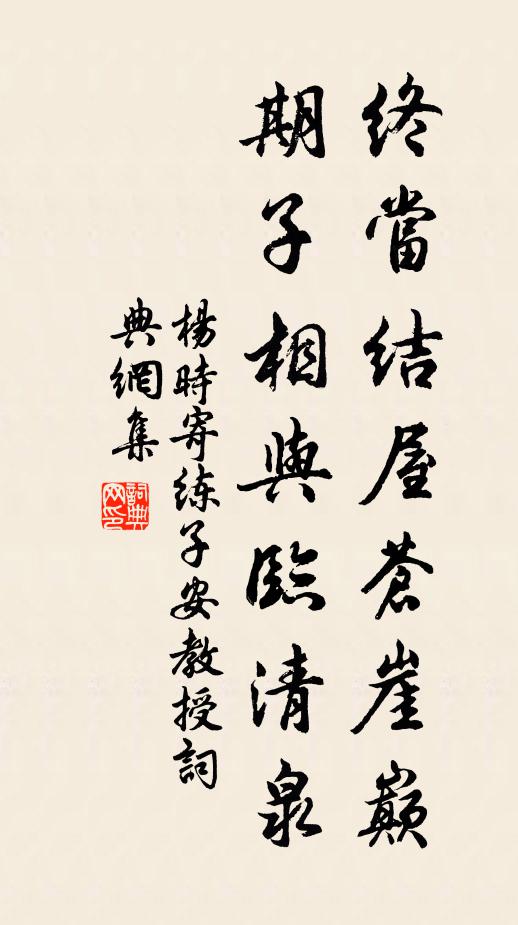 終當結屋蒼崖巔
期子相與臨清泉
楊時寄練子安教授詞
典網集
詞典網印